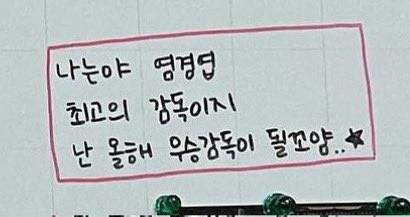 나는야 염경엽
최고의 감독이지
난 올해 우승감독이 될꼬양..★